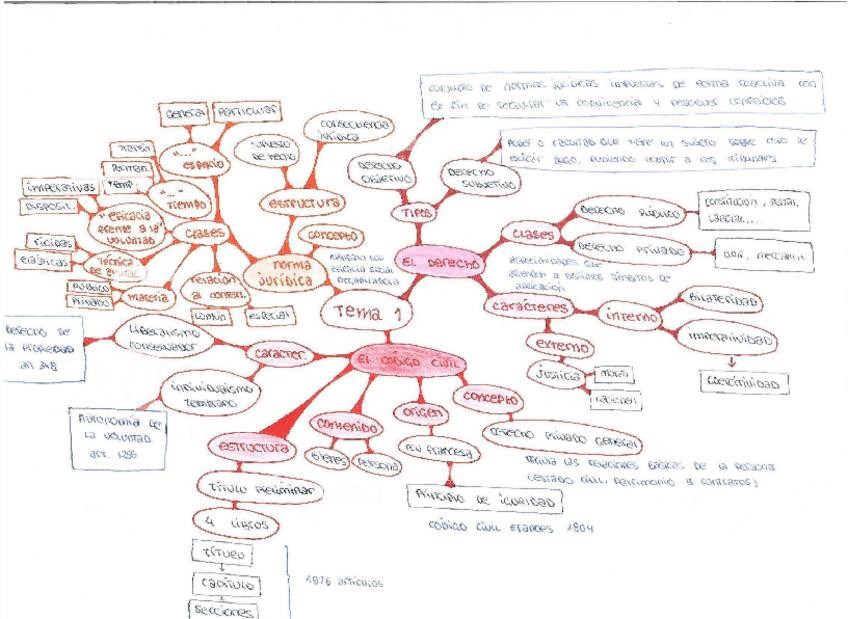 CONJUNTO DE NORMAS JURÍDICAS IMPUESTAS DE FORMA COACTIVA CON
EL FIN DE REGULAR LA CONVIVENCIA Y RESOLVER CONFLICTOS
General
Particular
CONSECUENCIA
JURÍDICA
SUPUESTO
DE HECHO
"..."
ESPACIO
PODER O FACULTAD QUE TIENE UN SUJETO SOBRE OTRO DE
EXIGIR ALGO, PUDIENDO ACUDIR A LOS TRIBUNALES
DERECHO
OBJETIVO
DERECHO
SUBJETIVO
TRANSIT
PERMAN.
TEMP.
"..."
TIEMPO
imperativas
DISPOSIT.
"EFICACIA
FRENTE A LA"
VOLUNTAD
ESTRUCTURA
TIPOS
CLASES
CONCEPTO
CLASES
DERECHO PÚBLICO
CONSTITUCIÓN, PENAL,
LABORAL....
DERECHO PRIVADO
CIVIL, MERCANTIL
RÍGIDAS
ELÁSTICAS
TÉCNICA
DE APLIC.
norma
jurídica
EL DERECHO
ESPECIALIDADES QUE
ATIENDEN A DISTINTOS ÁMBITOS DE
APLICACIÓN
PÚBLICO
PRIVADO
materia
RELACIÓN
AL CONTEN.
COMÚN
ESPECIAL
Tema 1
CARACTERES
INTERNO
BILATERALIDAD
IMPERATIVIDAD
COERCITIVIDAD
EXTERNO
JUSTICIA
MORAL
DERECHO DE
LA PROPIEDAD
art 348
LIBERALISMO
CONSERVADOR
CARACTER.
EL CÓDIGO CIVIL
INDIVIDUALISMO
TEMPLADO
AUTONOMÍA DE
LA VOLUNTAD
art. 1255
CONCEPTO
ORIGEN
CONTENIDO
ESTRUCTURA
BIENES
PERSONA
REV FRANCESA
DERECHO PRIVADO GENERAL
REGULA LAS RELACIONES BÁSICAS DE LA PERSONA
(ESTADO CIVIL, PATRIMONIO Y CONTRATOS)
PRINCIPIO DE IGUALDAD
CÓDIGO CIVIL FRANCES 1804
TÍTULO PRELIMINAR
4 LIBROS
TÍTULO
CAPÍTULO
SECCIONES
1976 ARTÍCULOS